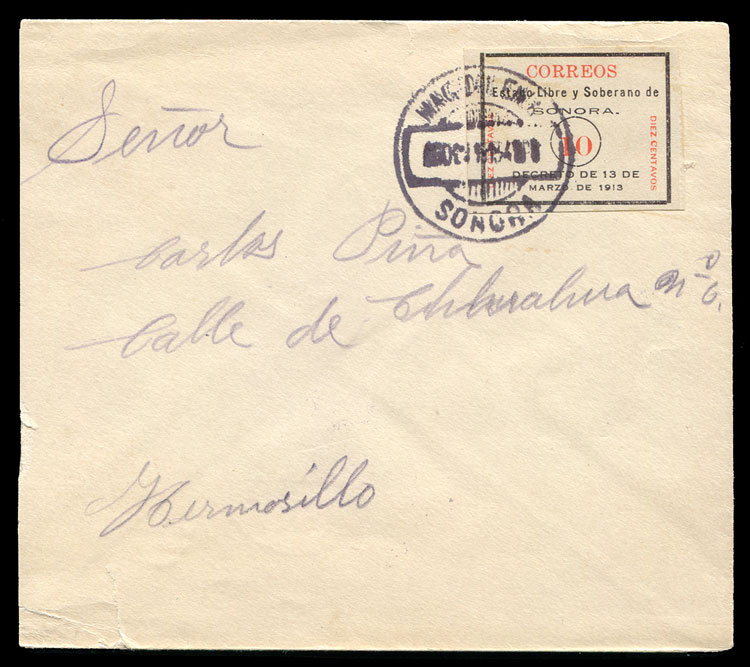 CORREOS
Estado Libre y Soberano de
SONORA.
10
DIEZ CENTAVOS
DECRETO DE 13 DE
MARZO. DE 1913
SONORA
Señor
Carlos Piña
Calle de Chihuahua Nº 6.
Hermosillo